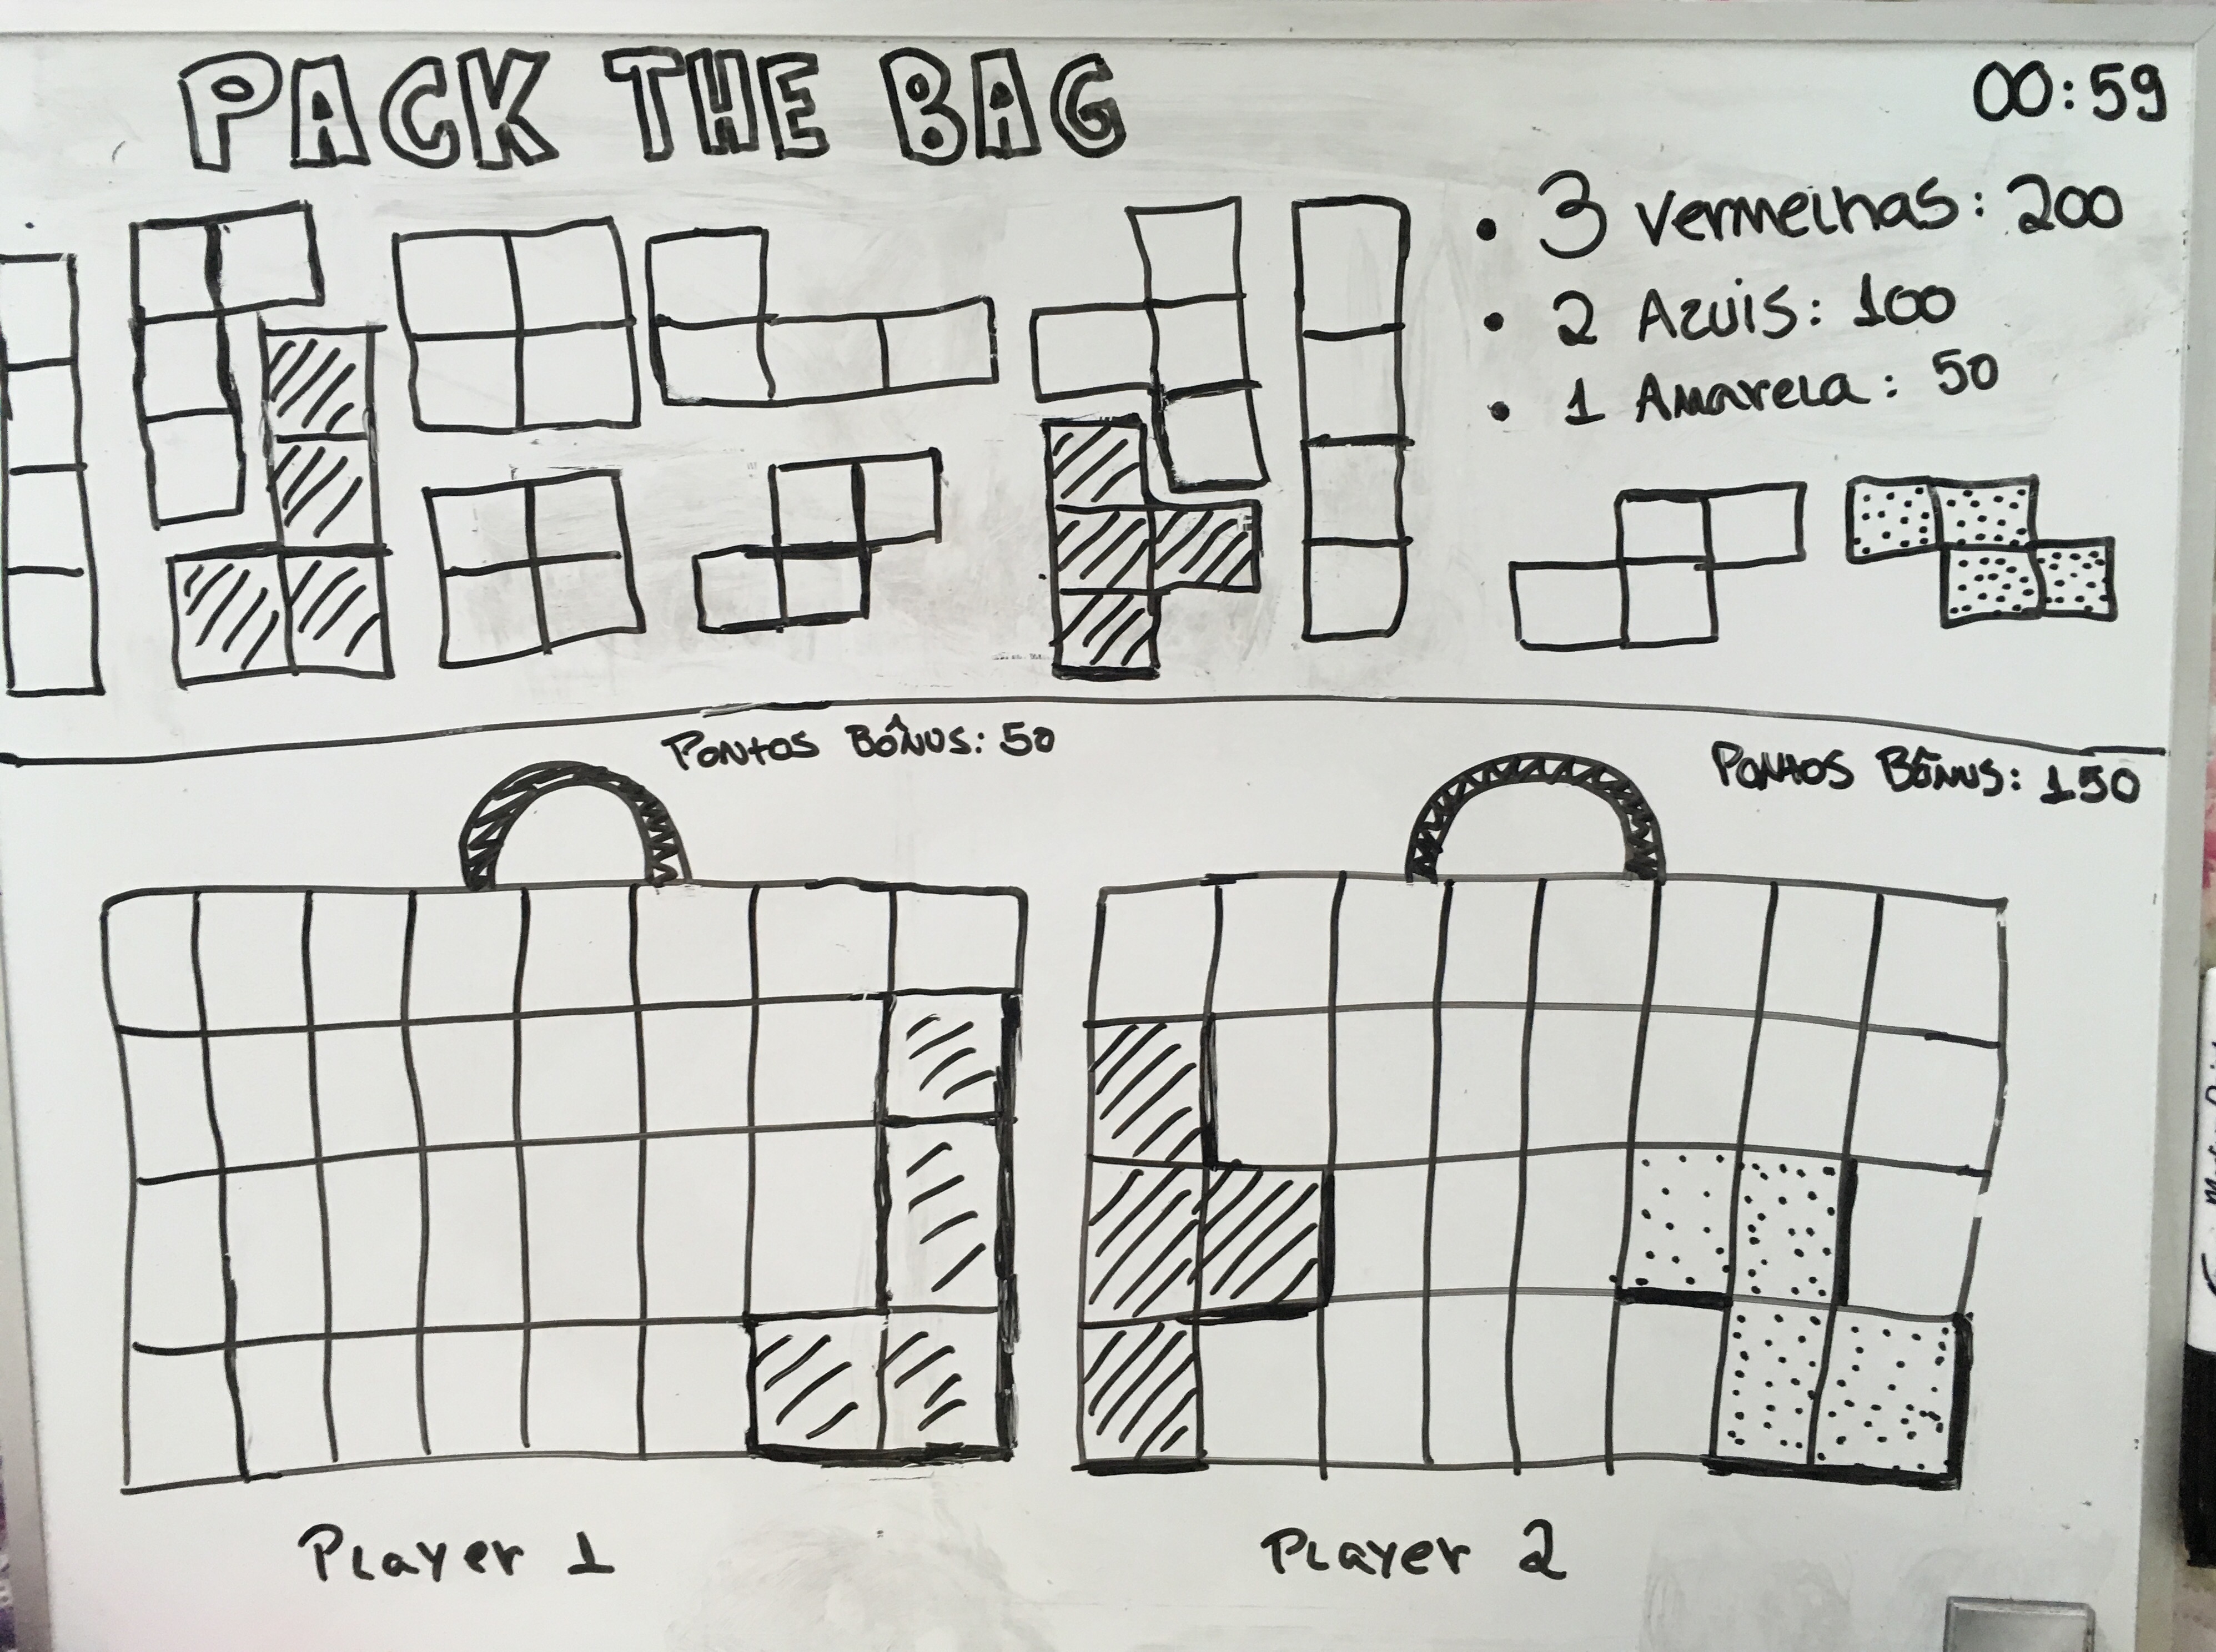 PACK THE BAG
00:59
• 3 vermelhas: 200
• 2 Azuis: 100
• 1 Amarela: 50
Pontos Bônus: 50
Pontos Bônus: 150
Player 1
Player 2